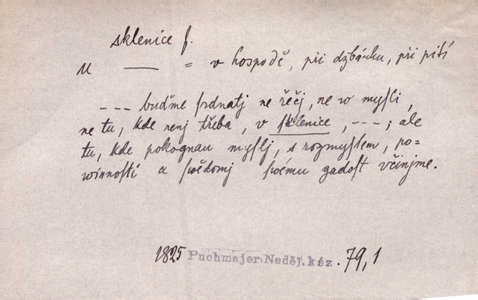 sklenice f.
u — = v hospodě, při džbánku, při pití
--- buďme srdnatj ne řečj, ne w mysli,
ne tu, kde nenj třeba, v sklenice, ---; ale
tu, kde pokognau myslj, s rozmyslem, po-
winnosti a swědomj swému gadost včinjme.
1825 Puchmajer Neděj. káz. 79,1